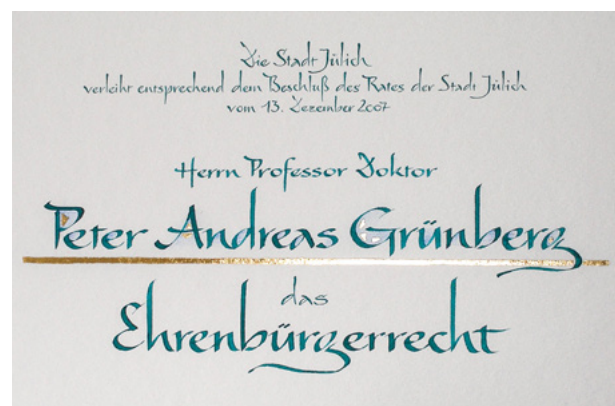 Die Stadt Jülich
verleiht entsprechend dem Beschluß des Rates der Stadt Jülich
vom 13. Dezember 2007
Herrn Professor Doktor
Peter Andreas Grünberg
das
Ehrenbürgerrecht